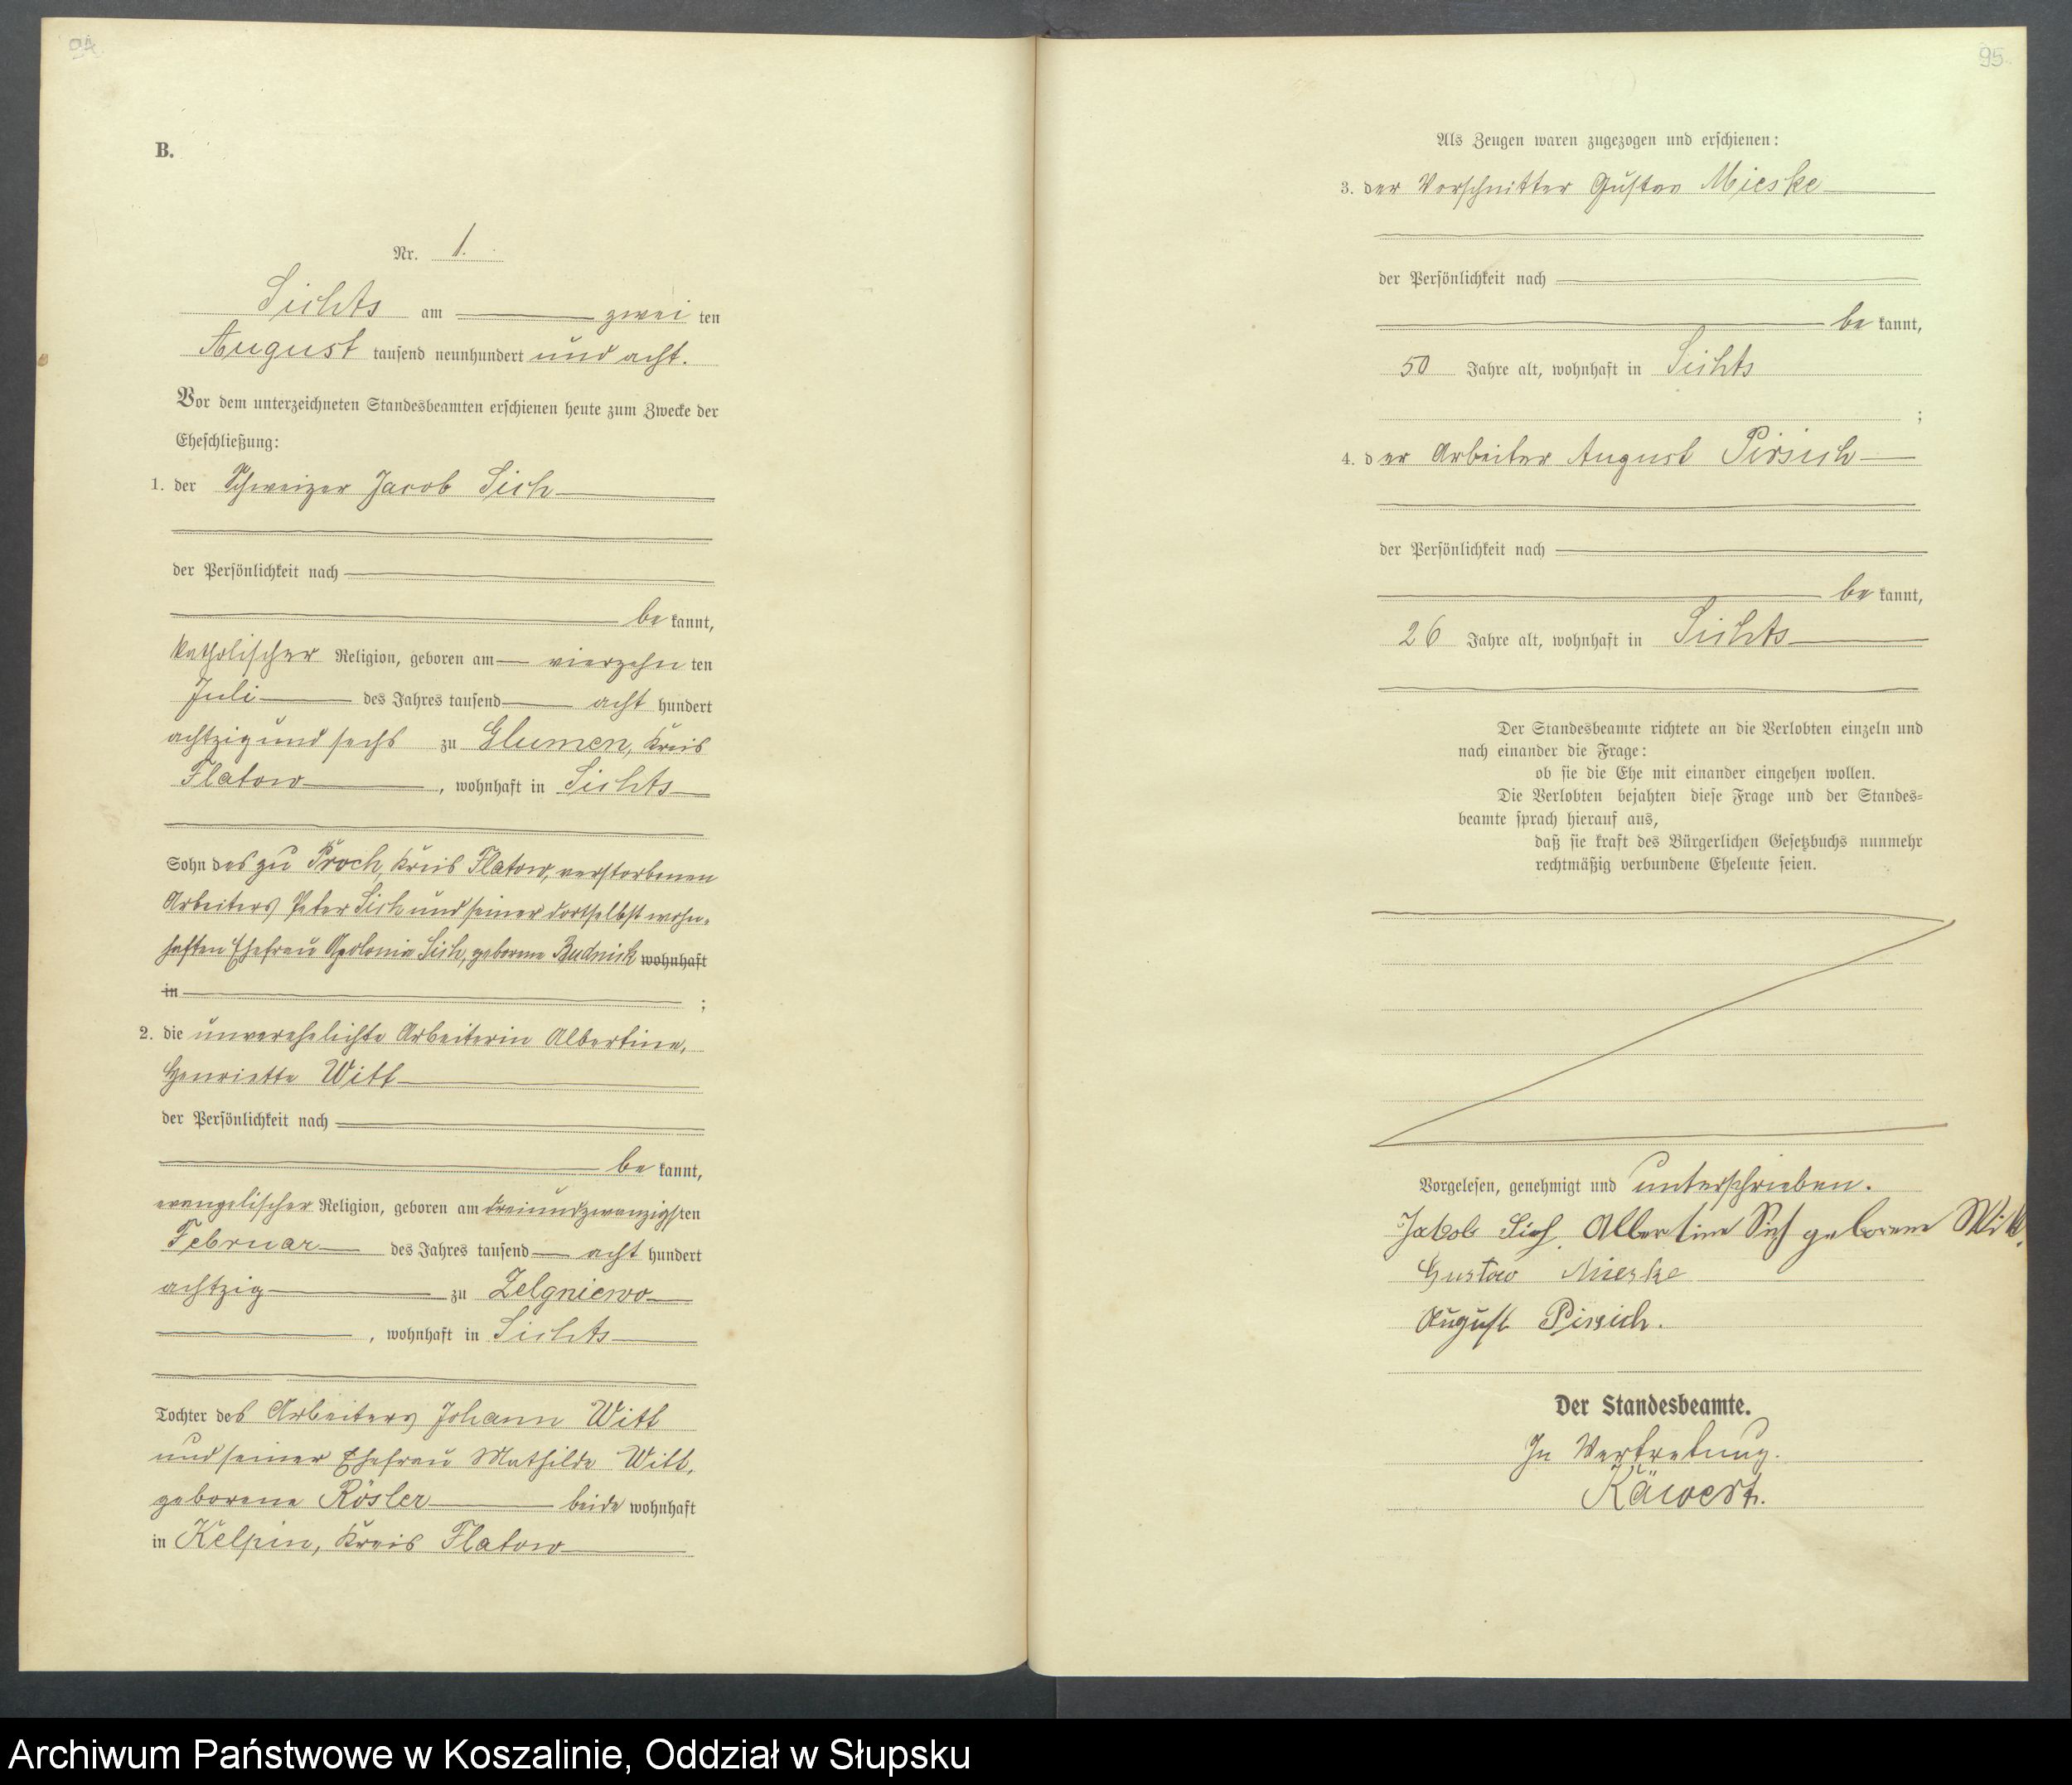 B.
Nr. 1.
Sichts am zwei ten
August tausend neunhundert und acht.
Vor dem unterzeichneten Standesbeamten erschienen heute zum Zwecke der
Eheschließung:
1. der Schweizer Jacob Sich
der Persönlichkeit nach
be kannt,
katholischer Religion, geboren am vierzehn ten
Juli des Jahres tausend acht hundert
achtzig und sechs zu Glumen, Kreis
Flatow, wohnhaft in Sichts
Sohn des zu Proch, Kreis Flatow, verstorbenen
Arbeiters Peter Sich und seiner dortselbst wohn-
haften Ehefrau Apolonia Sich, geborene Budnick wohnhaft
in ;
2. die unverehelichte Arbeiterin Albertine,
Henriette Witt
der Persönlichkeit nach
be kannt,
evangelischer Religion, geboren am dreiundzwanzigsten
Februar des Jahres tausend acht hundert
achtzig zu Zelgniewo
, wohnhaft in Sichts
Tochter des Arbeiters Johann Witt
und seiner Ehefrau Mathilde Witt,
geborene Rösler beide wohnhaft
in Kelpin, Kreis Flatow
95
Als Zeugen waren zugezogen und erschienen:
3. der Vorschnitter Gustav Mieske
der Persönlichkeit nach
be kannt,
50 Jahre alt, wohnhaft in Sichts
;
4. der Arbeiter August Pirsich
der Persönlichkeit nach
be kannt,
26 Jahre alt, wohnhaft in Sichts
Der Standesbeamte richtete an die Verlobten einzeln und
nach einander die Frage:
ob sie die Ehe mit einander eingehen wollen.
Die Verlobten bejahten diese Frage und der Standes-
beamte sprach hierauf aus,
daß sie kraft des Bürgerlichen Gesetzbuchs nunmehr
rechtmäßig verbundene Eheleute seien.
Vorgelesen, genehmigt und unterschrieben.
Jakob Sich. Albertine Sich geborene Witt.
Gustav Mieske
August Pirsich.
Der Standesbeamte.
In Vertretung.
Käwert.
Archiwum Państwowe w Koszalinie, Oddział w Słupsku